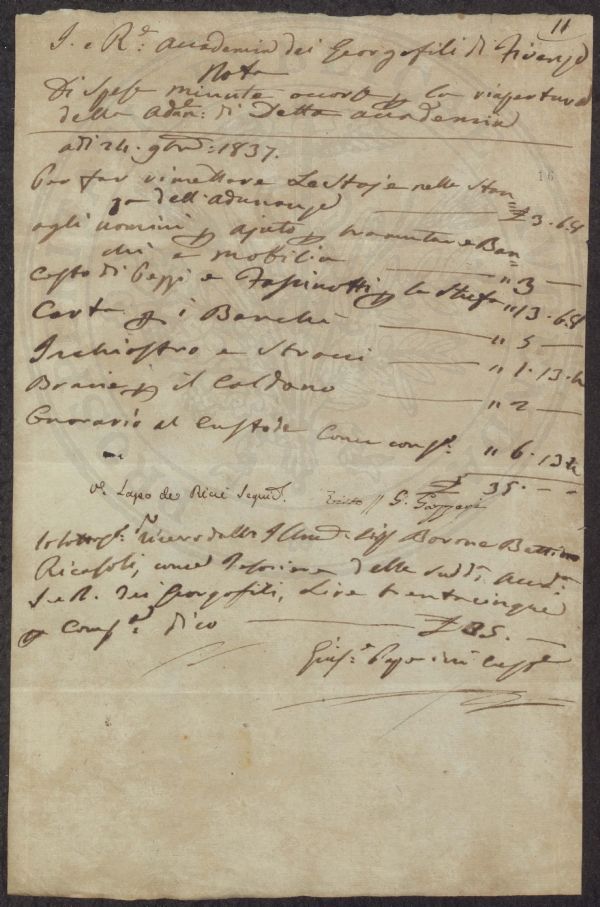 11
I. e R.e Accademia dei Georgofili di Firenze
Nota
Di Spese minute occorse p. la riapertura
delle Adun.e di Detta Accademia
adi 24. 9bre: 1837.
16
Per far rimettere Le Stoje nelle Stan=
ze dell'adunanze £ 3. 6. 8
agli uomini p. ajuto p. tramutare Ban=
chi e mobilia " 3 —
Costo di Pezzi e Fascinotti p. la Stufa " 13. 6. 8
Carta p. i Banchi " 5 —
Inchiostro e Stracci " 1. 13. 4
Brace p. il Caldano " 2 —
Onorario al Custode Come cons.o " 6. 13. 4
£ 35. — —
V.o Lapo de Ricci Seg.
Visto // G. Gazzeri
Io Sott.o Ricevo dall' Illmo. Sig.r Barone Bettino
Ricasoli, come Tesoriere della Sudd.a Accad.a
I. e R. dei Georgofili, Lire trentacinque
p. Cons.o dico £ 35. —
Gius.e Cust.e